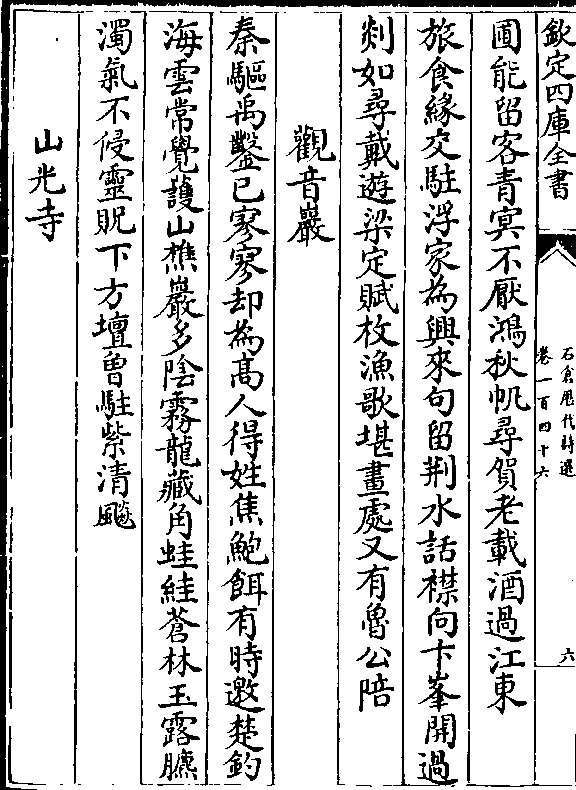 欽定四庫全書
石倉歴代詩選
卷一百四十六
六
圃能留客青冥不厭鴻秋帆尋賀老載酒過江東
旅食緣交駐浮家為興來句留荆水話襟向卞峯開過
剡如尋戴遊梁定賦枚漁歌堪畫處又有魯公陪
觀音巖
秦驅禹鑿已寥寥却為高人得姓焦鮑餌有時邀楚釣
海雲常覺護山樵巖多陰霧龍藏角蛙絓蒼林玉露臕
濁氣不侵靈貺下方壇曾駐紫清飈
山光寺